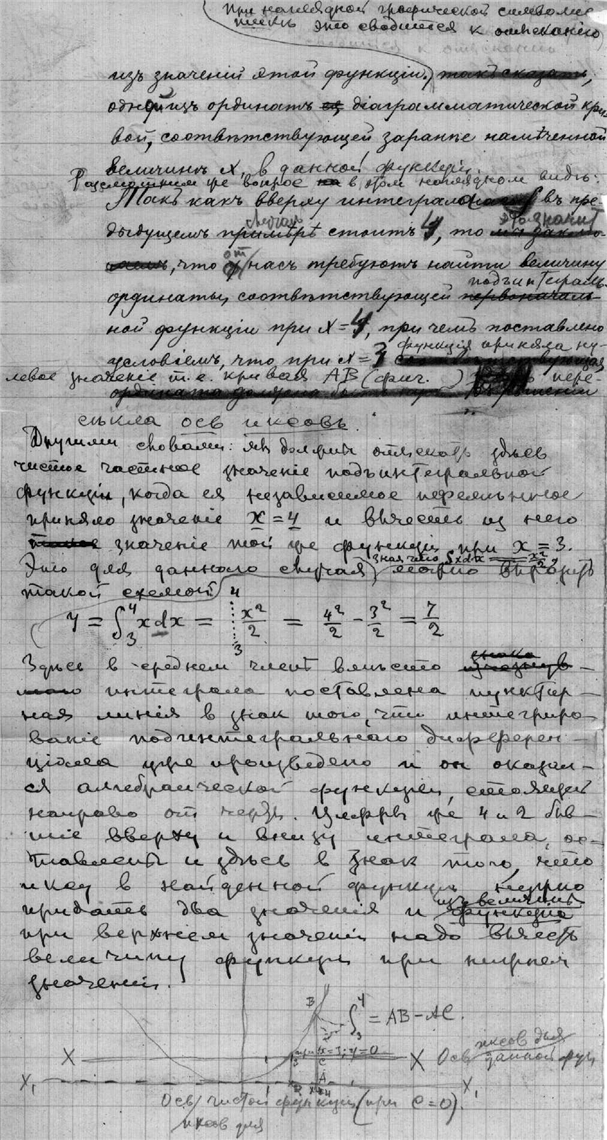 при наглядной графической символис
тикѣ это сводится къ отысканію
изъ значеній этой функціи,
одной изъ ординатъ діаграмматической кри
вой, соотвѣтствующей заранѣе намѣченной
величинѣ X, в данной функціи.
Разсмотримъ же вопрос в этом наглядном видѣ:
Такъ какъ вверху интеграла в пре
дыдущемъ случаѣ стоитъ 4, то это значит
, что от насъ требуютъ найти величину
ординаты, соотвѣтствующей подъинтеграль
ной функціи при X = 4, при чемъ поставлено
условіемъ, что при X = 3 функція приняла ну-
левое значеніе т. е. кривая AB (фиг. ) пере-
сѣкла ось иксовъ.
Другими словами: мы должны отыскать здѣсь
чистое частное значеніе подъинтегральной
функціи, когда ея независимое перемѣнное
приняло значеніе x = 4 и вычесть из него
значеніе той же функціи при x = 3.
Это для даннаго случая можно выразить
такой схемой
y = ∫₃⁴ x dx = ⁴₃ x²/2 = 4²/2 - 3²/2 = 7/2
Здѣсь в среднем членѣ вмѣсто знака
интеграла поставлена пунктир-
ная линія в знак того, что интегриро-
ваніе подинтегральнаго дифферен-
ціала уже произведено и он оказал-
ся алгебраической функціей, стоящей
направо от черты. Цифры же 4 и 2 быв-
шіе вверху и внизу интеграла, ос-
тавлены и здѣсь в знак того, что
иксу в найденной функціи нужно
придать два значенія и из величины
при верхнем значеніи надо вычесть
величину функціи при нижнем
значеніи.
B ∫₃⁴ = AB - AC.
X при x=3; y=0 X Ось иксов для данной фун
C
A
X₁ X₁
Ось иксов для чистой функціи (при C=0).